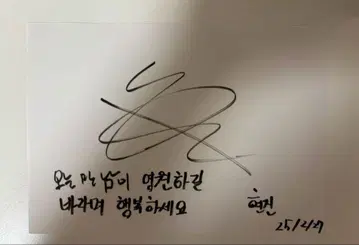 오늘 만남이 영원하길
바라며 행복하세요
현진
25/2/27